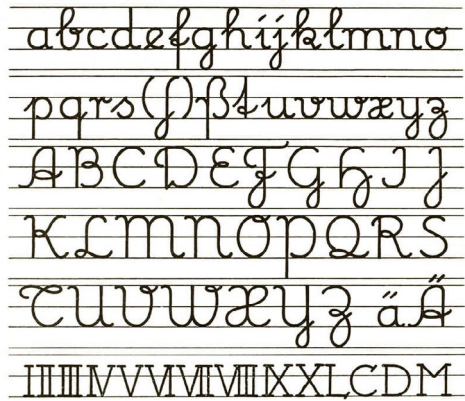 abcdefghijklmno
pqrs(ſ)ßtuvwxyz
ABCDEFGHIJ
KLMNOPQRS
TUVWXYZ äÄ
IIIIIIIVVVIVIIVIIIIXXLCDM